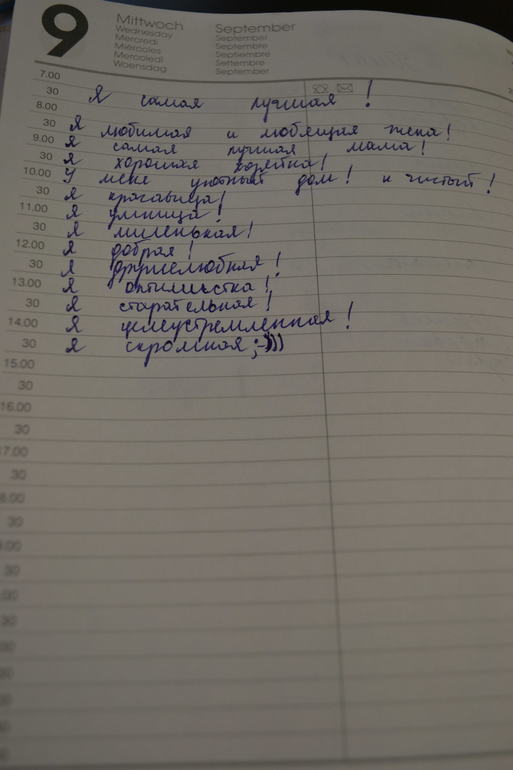 9
Mittwoch September
Wednesday September
Mercredi Septembre
Miércoles Septiembre
Mercoledì Settembre
Woensdag September
7.00
30 Я самая лучшая!
8.00
30 Я любимая и любящая жена!
9.00 Я самая лучшая мама!
30 Я хорошая хозяйка!
10.00 У меня уютный дом! и чистый!
30 Я красавица!
11.00 Я умница!
30 Я миленькая!
12.00 Я добрая!
30 Я дружелюбная!
13.00 Я оптимистка!
30 Я старательная!
14.00 Я целеустремленная!
30 Я скромная ;-)))
15.00
30
16.00
30
17.00
30
8.00
30
9.00
30
:00
30
:00
30